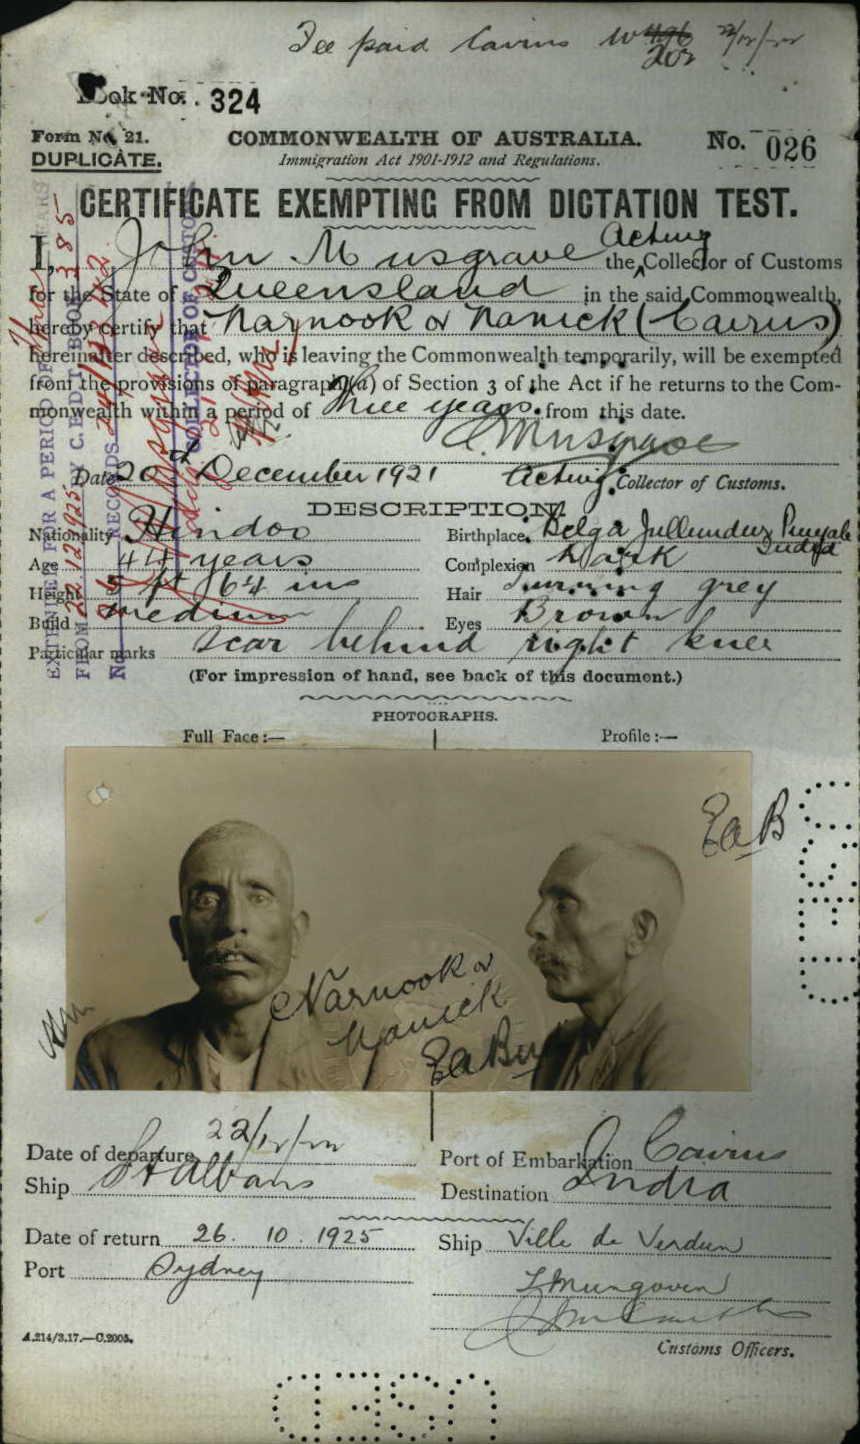 Fee paid Cairns
Book No. 324
Form No. 21.
DUPLICATE.
COMMONWEALTH OF AUSTRALIA.
Immigration Act 1901-1912 and Regulations.
No. 026
CERTIFICATE EXEMPTING FROM DICTATION TEST.
I, John Musgrave the Acting Collector of Customs
for the State of Queensland in the said Commonwealth,
hereby certify that Narnook or Nanick (Cairns)
hereinafter described, who is leaving the Commonwealth temporarily, will be exempted
from the provisions of paragraph (a) of Section 3 of the Act if he returns to the Com-
monwealth within a period of Three years from this date.
J. Musgrave
Date 20d December 1921 Acting Collector of Customs.
DESCRIPTION.
Nationality Hindoo
Birthplace Belga Jullundur India
Age 44 years
Complexion Dark
Height 5 ft 6¼ ins
Hair Turning grey
Build medium
Eyes Brown
Particular marks scar behind right knee
(For impression of hand, see back of this document.)
PHOTOGRAPHS.
Full Face :—
Profile :—
EaB
Narnook or
Nanick
Date of departure 22/12/
Port of Embarkation Cairns
Ship St Albans
Destination India
Date of return 26. 10. 1925
Ship Ville de Verdun
Port Sydney
A.214/3.17.—C.2005.
Customs Officers.
EXTENDED FOR A PERIOD OF Three YEARS
FROM 22.12.1925 BY C.E.D.T. BOOK 385
No.
RECORDS
COLLECTOR OF CUSTOMS